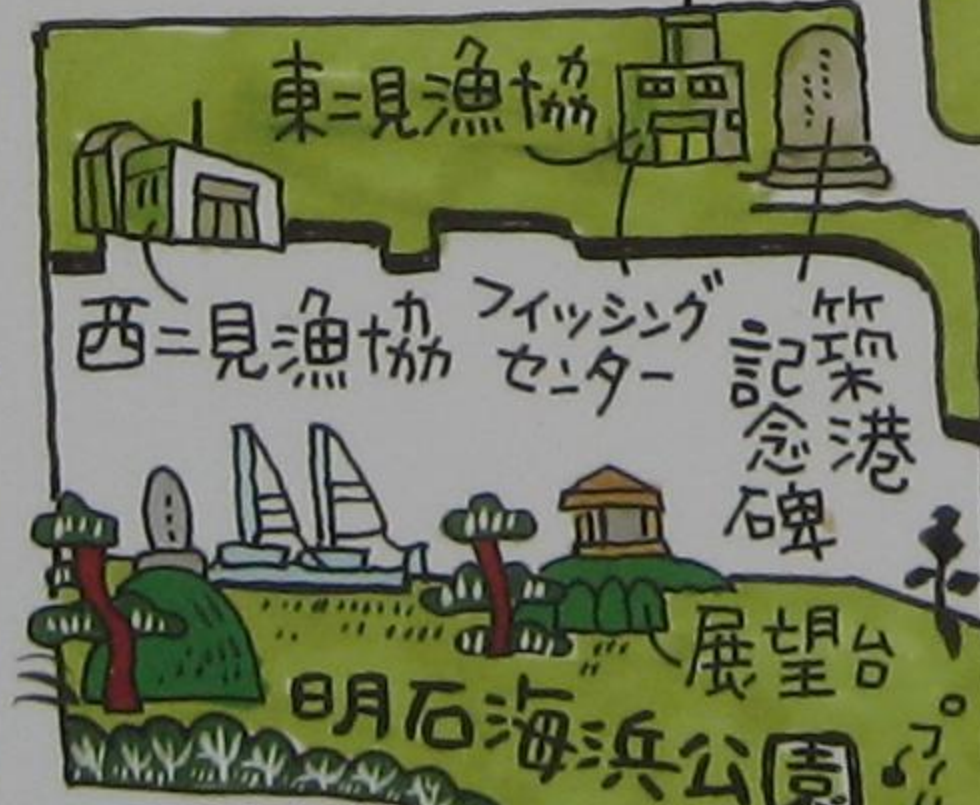 東二見漁協
西二見漁協
フィッシング
センター
築港
記念碑
展望台
明石海浜公園
プー